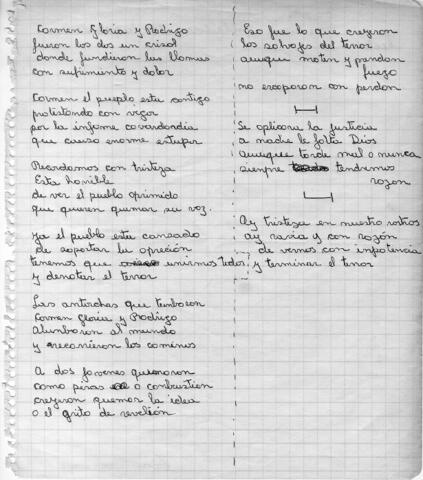 Carmen Gloria y Rodrigo
fueron los dos un crisol
donde fundieron las llamas
con sufrimento y dolor
Carmen el pueplo esta contigo
protistando con vigor
por la infame covardardia
que causo enorme estupor
Recordamos con tristiza
Esta horrible
de ver el publo oprimido
que quieren quemar su voz.
ya el pueblo esta cansado
de soportar la opreción
tenemos que unirnos todos
y derrotar el terror
Las antorchas que
Carmen Gloria y Rodrigo
Alunbraron al mundo
y recorrieron los caminos
A dos jovenes quemaron
como piras o combustion
creyeron quemar la idea
o el grito de revelión
Eso fue lo que creyeron
los salvajes del terror
aunque maten y prendan
fuego
no escaparan con perdon
Se aplicara la justicia
a nadie le falta Dios
Aunque tarde mal o nunca
sienpre tendremos
razon
Ay tristeza en nuestro rostros
ay ravia y con razón
de vernos con inpotencia
y terminar el terror